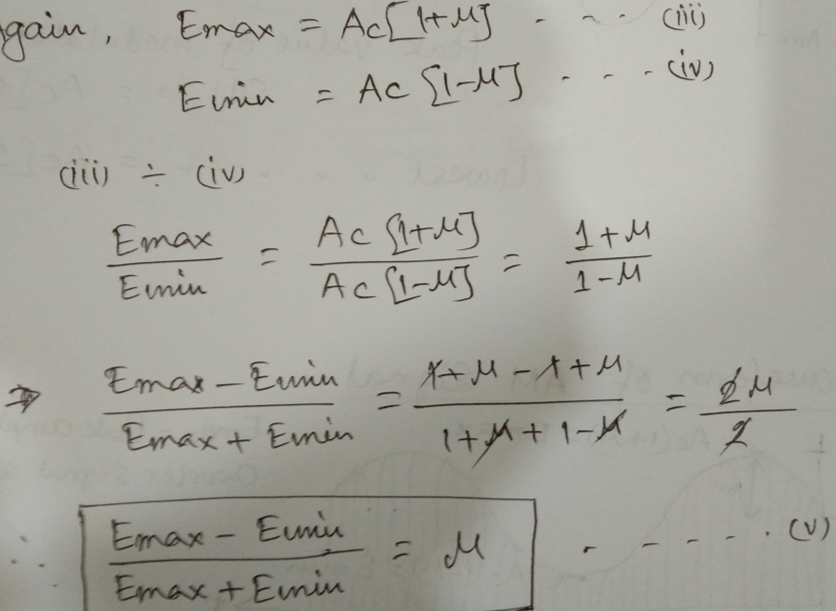 gain, Emax = Ac[1+μ] - - - (iii)
Emin = Ac [1-μ] - - - - (iv)
(iii) ÷ (iv)
Emax / Emin = Ac [1+μ] / Ac [1-μ] = 1+μ / 1-μ
⇒ Emax - Emin / Emax + Emin = 1+μ-1+μ / 1+μ+1-μ = 2μ / 2
∴ Emax - Emin / Emax + Emin = μ - - - - - (v)